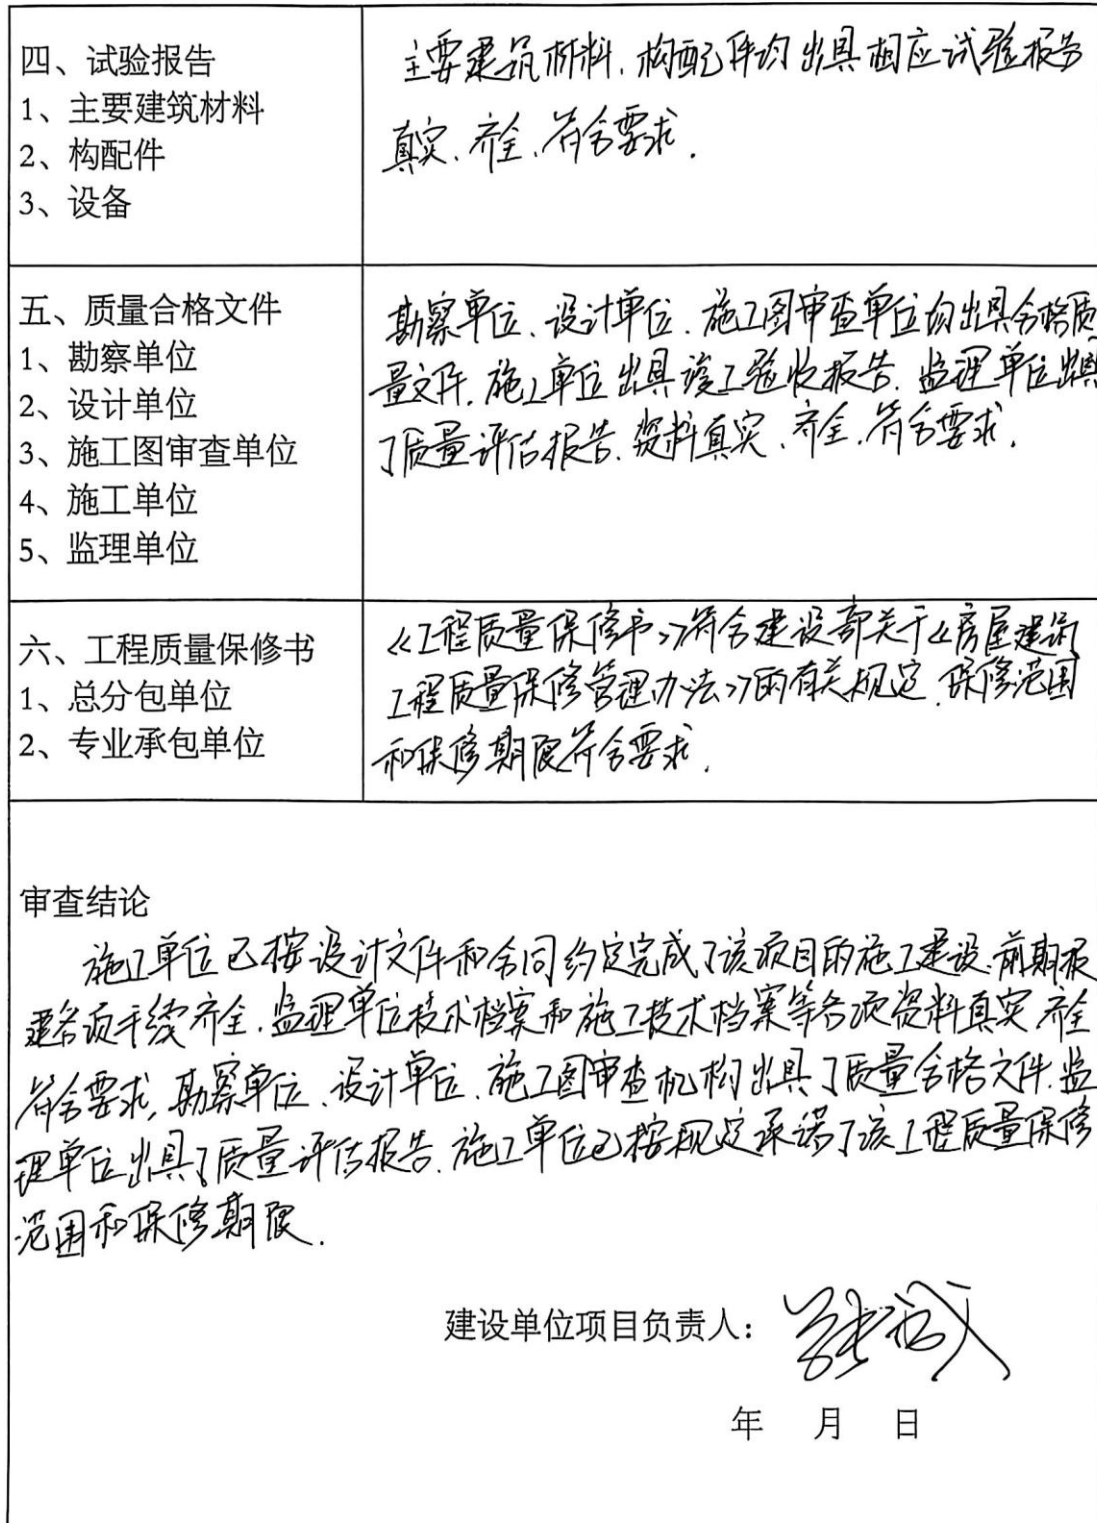 四、试验报告
1、主要建筑材料
2、构配件
3、设备
主要建筑材料、构配件均出具相应试验报告
真实、齐全、符合要求.
五、质量合格文件
1、勘察单位
2、设计单位
3、施工图审查单位
4、施工单位
5、监理单位
勘察单位、设计单位、施工图审查单位均出具合格质
量文件,施工单位出具竣工验收报告、监理单位出具
了质量评估报告、资料真实、齐全、符合要求.
六、工程质量保修书
1、总分包单位
2、专业承包单位
《工程质量保修书》符合建设部关于《房屋建筑
工程质量保修管理办法》的有关规定.保修范围
和保修期限符合要求.
审查结论
施工单位已按设计文件和合同约定完成了该项目的施工建设.前期报
建各项手续齐全.监理单位技术档案和施工技术档案等各项资料真实 齐全
符合要求,勘察单位、设计单位、施工图审查机构出具了质量合格文件.监
理单位出具了质量评估报告.施工单位已按规定承诺了该工程质量保修
范围和保修期限.
建设单位项目负责人:
年 月 日